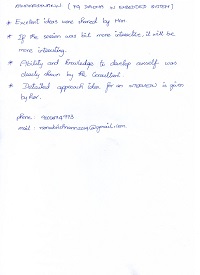 (PG DIPLOMA IN EMBEDDED SYSTEM)
* Excellent ideas were shared by Him
* If the session was bit more interactive, it will be
more interesting.
* Ability and knowledge to develop ourself was
clearly shown by the Consultant.
* Detailed approach idea for an INTERVIEW is given
by her.
phone :
mail : @gmail.com